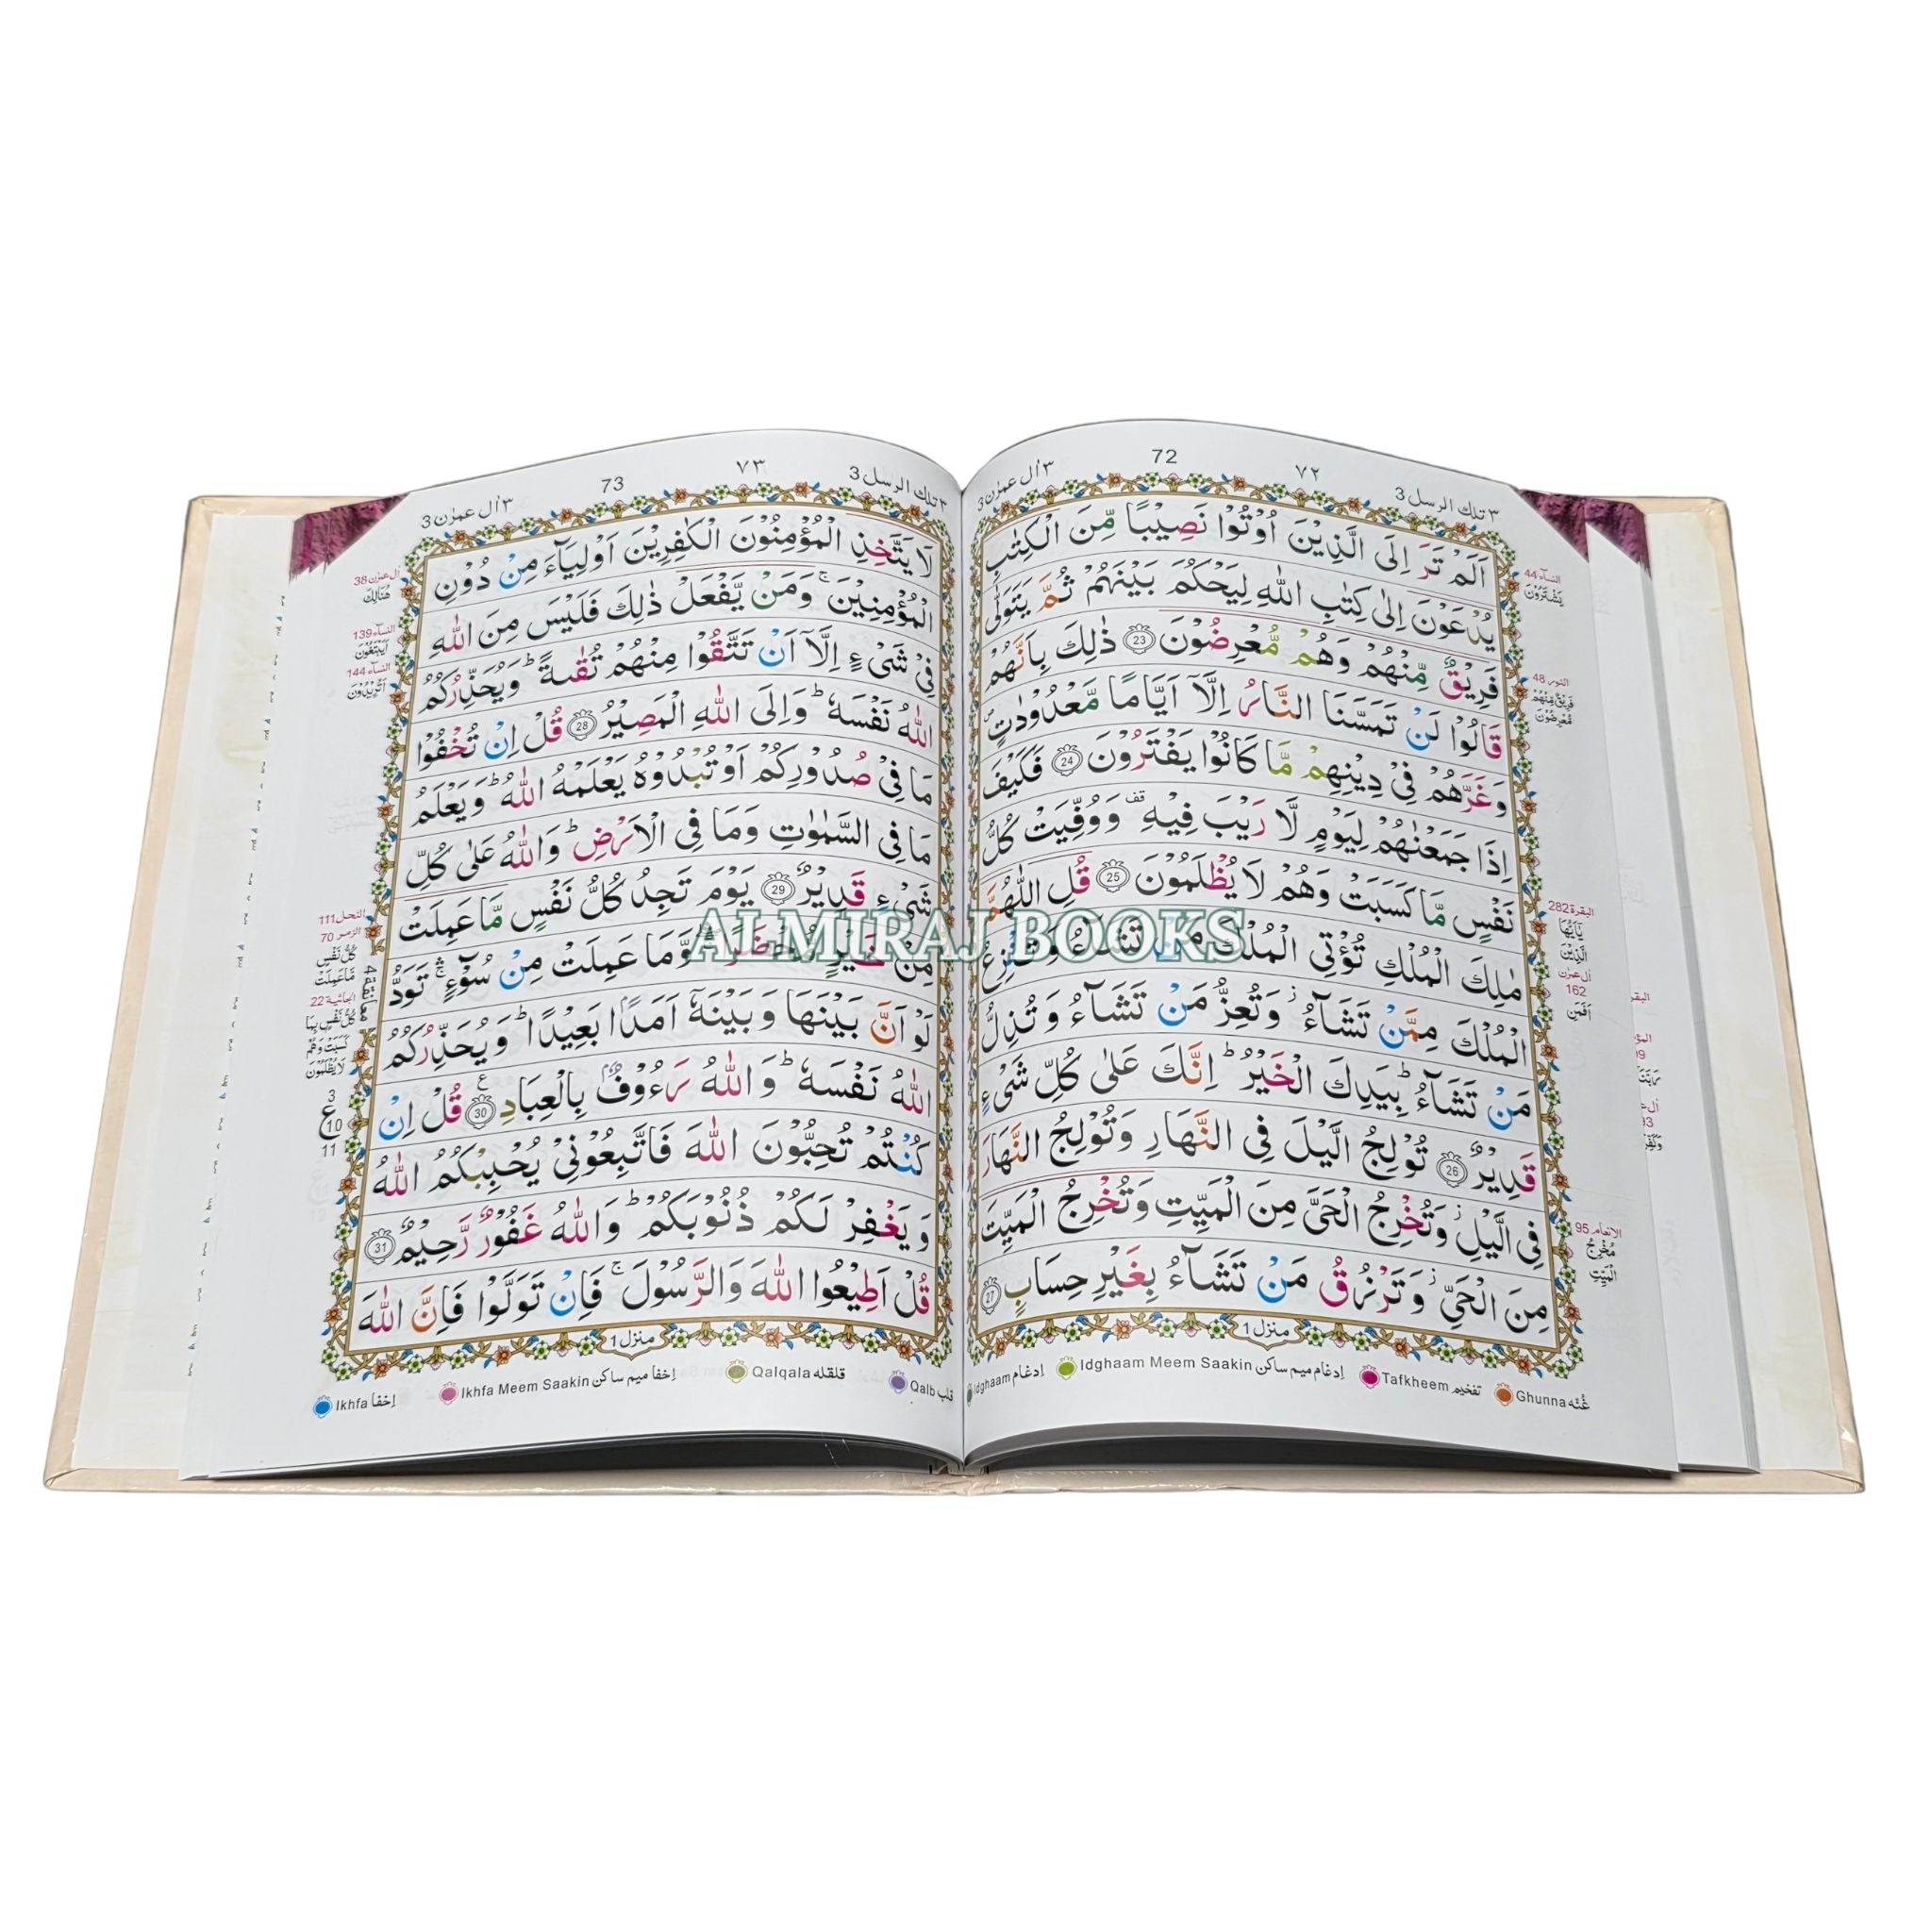 ٣ تلك الرسل 3
٧٢
72
٣ اٰل عمرٰن 3
اَلَمْ تَرَ اِلَى الَّذِيْنَ اُوْتُوْا نَصِيْبًا مِّنَ الْكِتٰبِ
يُدْعَوْنَ اِلٰى كِتٰبِ اللّٰهِ لِيَحْكُمَ بَيْنَهُمْ ثُمَّ يَتَوَلّٰى
فَرِيْقٌ مِّنْهُمْ وَهُمْ مُّعْرِضُوْنَ 23 ذٰلِكَ بِاَنَّهُمْ
قَالُوْا لَنْ تَمَسَّنَا النَّارُ اِلَّآ اَيَّامًا مَّعْدُوْدٰتٍ
وَغَرَّهُمْ فِيْ دِيْنِهِمْ مَّا كَانُوْا يَفْتَرُوْنَ 24 فَكَيْفَ
اِذَا جَمَعْنٰهُمْ لِيَوْمٍ لَّا رَيْبَ فِيْهِ قف وَوُفِّيَتْ كُلُّ
نَفْسٍ مَّا كَسَبَتْ وَهُمْ لَا يُظْلَمُوْنَ 25 قُلِ اللّٰهُمَّ
مٰلِكَ الْمُلْكِ تُؤْتِي الْمُلْكَ مَنْ تَشَآءُ وَتَنْزِعُ
الْمُلْكَ مِمَّنْ تَشَآءُ ز وَتُعِزُّ مَنْ تَشَآءُ وَتُذِلُّ
مَنْ تَشَآءُ ط بِيَدِكَ الْخَيْرُ ط اِنَّكَ عَلٰى كُلِّ شَيْءٍ
قَدِيْرٌ 26 تُوْلِجُ الَّيْلَ فِي النَّهَارِ وَتُوْلِجُ النَّهَارَ
فِي الَّيْلِ ز وَتُخْرِجُ الْحَيَّ مِنَ الْمَيِّتِ وَتُخْرِجُ الْمَيِّتَ
مِنَ الْحَيِّ ز وَتَرْزُقُ مَنْ تَشَآءُ بِغَيْرِ حِسَابٍ 27
منزل 1
النسآء 44
يَشْتَرُوْنَ
النور 48
فَرِيْقٌ مِّنْهُمْ
مُّعْرِضُوْنَ
البقرة 282
يٰٓاَيُّهَا
الَّذِيْنَ
اٰل عمرٰن
162
اَفَمَنِ
الانعام 95
مُخْرِجُ
الْمَيِّتِ
Ghunna غُنّه
Tafkheem تفخيم
Idghaam Meem Saakin اِدغام ميم ساكن
Idghaam اِدغام
٣ تلك الرسل 3
٧٣
73
٣ اٰل عمرٰن 3
لَا يَتَّخِذِ الْمُؤْمِنُوْنَ الْكٰفِرِيْنَ اَوْلِيَآءَ مِنْ دُوْنِ
الْمُؤْمِنِيْنَ ج وَمَنْ يَّفْعَلْ ذٰلِكَ فَلَيْسَ مِنَ اللّٰهِ
فِيْ شَيْءٍ اِلَّآ اَنْ تَتَّقُوْا مِنْهُمْ تُقٰىةً ط وَيُحَذِّرُكُمُ
اللّٰهُ نَفْسَهٗ ط وَاِلَى اللّٰهِ الْمَصِيْرُ 28 قُلْ اِنْ تُخْفُوْا
مَا فِيْ صُدُوْرِكُمْ اَوْ تُبْدُوْهُ يَعْلَمْهُ اللّٰهُ ط وَيَعْلَمُ
مَا فِي السَّمٰوٰتِ وَمَا فِي الْاَرْضِ ط وَاللّٰهُ عَلٰى كُلِّ
شَيْءٍ قَدِيْرٌ 29 يَوْمَ تَجِدُ كُلُّ نَفْسٍ مَّا عَمِلَتْ
مِنْ خَيْرٍ مُّحْضَرًا وَّمَا عَمِلَتْ مِنْ سُوْٓءٍ ج تَوَدُّ
لَوْ اَنَّ بَيْنَهَا وَبَيْنَهٗٓ اَمَدًۢا بَعِيْدًا ط وَيُحَذِّرُكُمُ
اللّٰهُ نَفْسَهٗ ط وَاللّٰهُ رَءُوْفٌۢ بِالْعِبَادِ 30 ع قُلْ اِنْ
كُنْتُمْ تُحِبُّوْنَ اللّٰهَ فَاتَّبِعُوْنِيْ يُحْبِبْكُمُ اللّٰهُ
وَيَغْفِرْ لَكُمْ ذُنُوْبَكُمْ ط وَاللّٰهُ غَفُوْرٌ رَّحِيْمٌ 31
قُلْ اَطِيْعُوا اللّٰهَ وَالرَّسُوْلَ ج فَاِنْ تَوَلَّوْا فَاِنَّ اللّٰهَ
منزل 1
اٰل عمرٰن 38
هُنَالِكَ
النسآء 139
اَيَبْتَغُوْنَ
النسآء 144
اَتُرِيْدُوْنَ
النحل 111
الزمر 70
كُلُّ نَفْسٍ
مَّا عَمِلَتْ
الجاثية 22
كُلُّ نَفْسٍۢ بِمَا
كَسَبَتْ وَهُمْ
لَا يُظْلَمُوْنَ
معانقة 4
3
ع
10
11
Qalb قلب
Qalqala قلقله
Ikhfa Meem Saakin اِخفا ميم ساكن
Ikhfa اِخفا
ALMIRAJ BOOKS